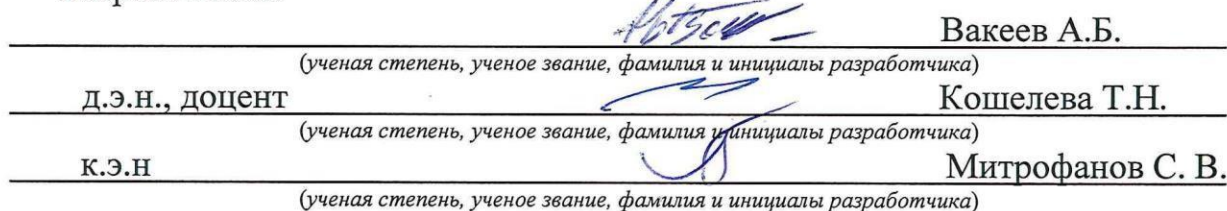 Вакеев А.Б.
(ученая степень, ученое звание, фамилия и инициалы разработчика)
д.э.н., доцент Кошелева Т.Н.
(ученая степень, ученое звание, фамилия и инициалы разработчика)
к.э.н Митрофанов С. В.
(ученая степень, ученое звание, фамилия и инициалы разработчика)